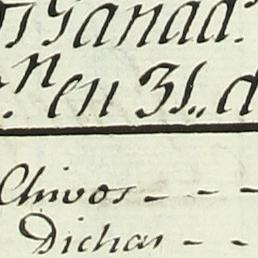 Ganad.
n en 31., d
Chivos - - -
Dichas - -